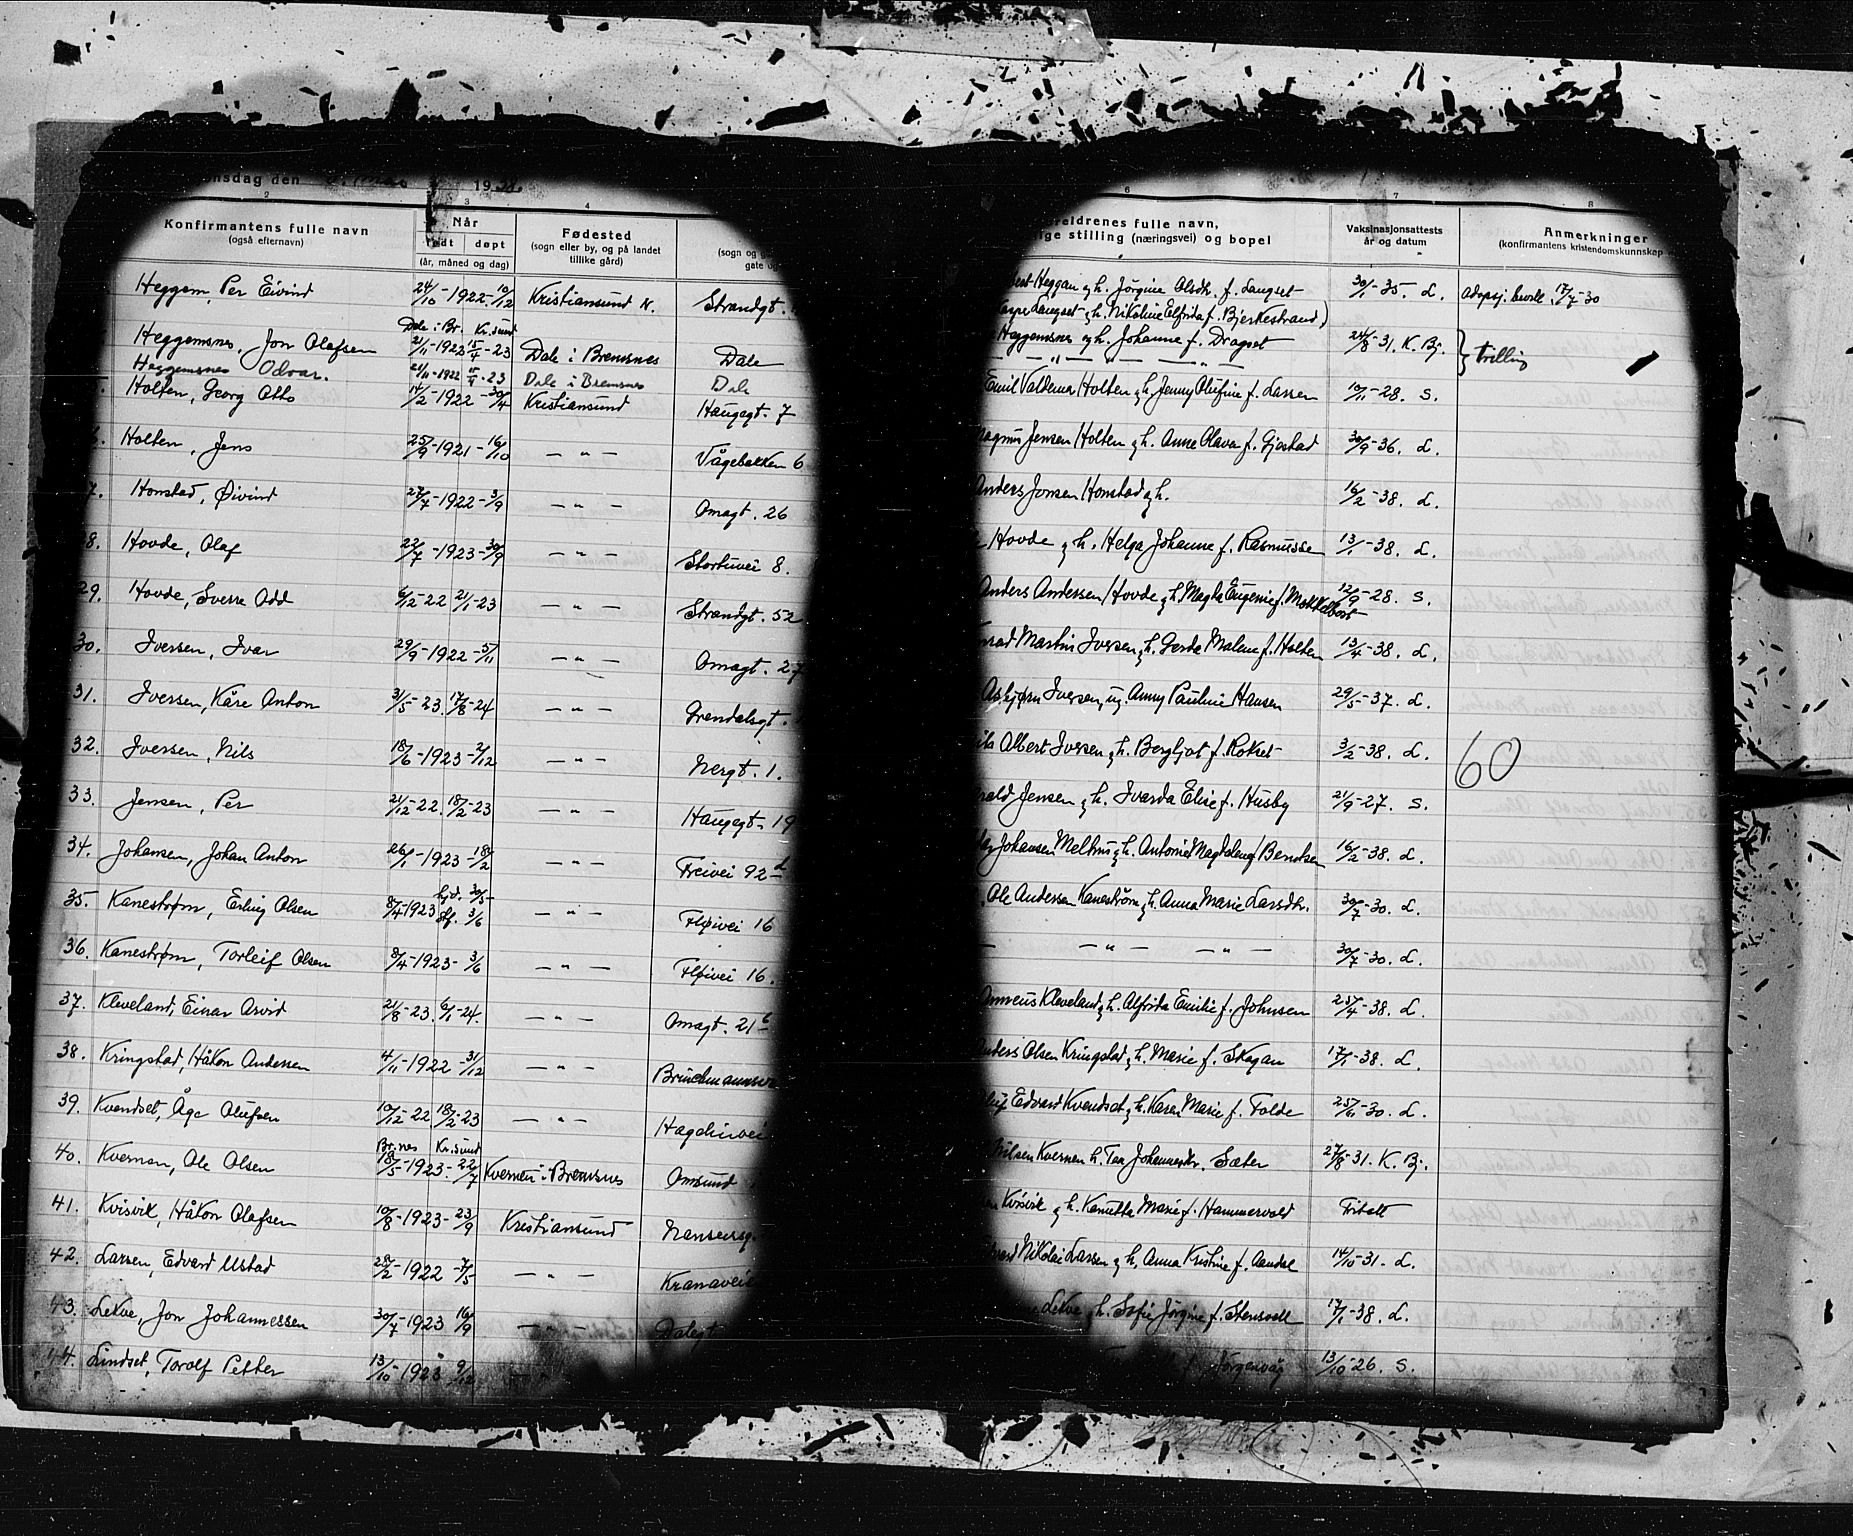 nsdag den 19
2 3 4 6 7 8
Konfirmantens fulle navn (også efternavn) Når født døpt (år, måned og dag) Fødested (sogn eller by, og på landet tillike gård) (sogn og g gate og eldrenes fulle navn, ige stilling (næringsvei) og bopel Vaksinasjonsattests år og datum Anmerkninger (konfirmantens kristendomskunnskap
Heggem, Per Eivind 24/10-1922-10/12 Kristiansund N. Strandgt. Heggan og h. Jørgine Olsdtr. f. Langset 30/1-35. L. adopsj. bevill. 17/7-30
Langset og h. Nikoline Elfrida f. Bjerkestrand)
Dale i Br. Kr.sund
Heggemsnes, Jon Olafsen 21/11-1922 15/4-23 Dale i Bremsnes Dale Heggemsnes og h. Johanne f. Dragset 24/8-31. K. Bj. } trilling
Heggemsnes Odvar. 21/11-1922 15/4-23 Dale i Bremsnes Dale — " — — " —
Holten, Georg Otto 14/2-1922-30/4 Kristiansund Haugegt. 7 Emil Valdemar Holten og h. Jenny Olufine f. Larsen 10/11-28. S.
Holten, Jens 25/9-1921-16/10 — " — Vågebakken 6 Magnus Jensen Holten og h. Anne Olava f. Gjøstad 30/9-36. L.
7. Honstad, Øivind 27/7-1922-3/9 — " — Omagt. 26 Anders Jonsen Honstad og h. 16/2-38. L.
8. Hovde, Olaf 22/7-1923-30/9 — " — Stortuvei 8. Hovde og h. Helga Johanne f. Rasmussen 13/1-38. L.
29. Hovde, Sverre Odd 6/12-22 21/1-23 — " — Strandgt. 52 Anders Andersen Hovde og h. Magda Eugenie f. Mekkelbost 12/9-28. S.
30. Iversen, Ivar 29/9-1922-5/11 — " — Omagt. 27 nrad Martin Iversen og h. Gerda Malene f. Holten 13/4-38. L.
31. Iversen, Kåre Anton 31/5-23. 17/8-24 — " — Grendalsgt. Asbjørn Iversen, ug. Anny Pauline Hansen 29/5-37. L.
32. Iversen, Nils 18/6-1923-2/12 — " — Nergt. 1. ils Albert Iversen og h. Bergljot f. Rokset 3/2-38. L. 60
33. Jensen, Per 21/12-22. 18/2-23 — " — Haugegt. 19 rald Jensen og h. Ivarda Elise f. Husby 21/9-27. S.
34. Johansen, Johan Anton 26/1-1923-18/2 — " — Freivei 92 d Johansen Melhus og h. Antonie Magdalena f. Berntsen 16/2-38. L.
35. Kanestrøm, Erling Olsen 8/4-1923 hjd. 30/5 stf. 3/6 — " — Fløivei 16 Ole Andersen Kanestrøm og h. Anna Marie Larsdtr. 30/7-30. L.
36. Kanestrøm, Torleif Olsen 8/4-1923-3/6 — " — Fløivei 16. — — " — — " — 30/7-30. L.
37. Kleveland, Einar Arvid 21/8-23. 6/1-24. — " — Omagt. 21 b Annæus Kleveland og h. Alfrida Emilie f. Johnsen 25/4-38. L.
38. Kringstad, Håkon Andersen 4/11-1922-31/12 — " — Anders Olsen Kringstad og h. Marie f. Skagan 17/1-38. L.
39. Kvendset, Åge Olufsen 10/12-22 18/2-23 — " — Hagelinvei Oluf Edvard Kvendset og h. Karen Marie f. Folde 25/11-30. L.
Br.nes Kr.sund
40. Kvernen, Ole Olsen 18/5-1923-22/7 Kvernen i Bremsnes Omsund Nilsen Kvernen h. Tea Johannesdtr. Sæter 27/8-31. K. Bj.
41. Kvisvik, Håkon Olafsen 10/8-1923-23/9 Kristiansund Nansensg. Kvisvik og h. Kanutta Marie f. Hammervold Fritatt
42. Larsen, Edvard Ustad 28/2-1922-7/5 — " — Kranavei Edvard Nikolai Larsen og h. Anna Kristine f. Aandal 14/10-31. L.
43. Lekve, Jon Johannessen 30/7-1923 16/9 — " — Dalegt Lekve og h. Sofie Jørgine f. Stensvoll 17/1-38. L.
44. Lindset, Torolf Petter 13/10-1923 9/12 f. Jørgenvåg 13/10-26. S.